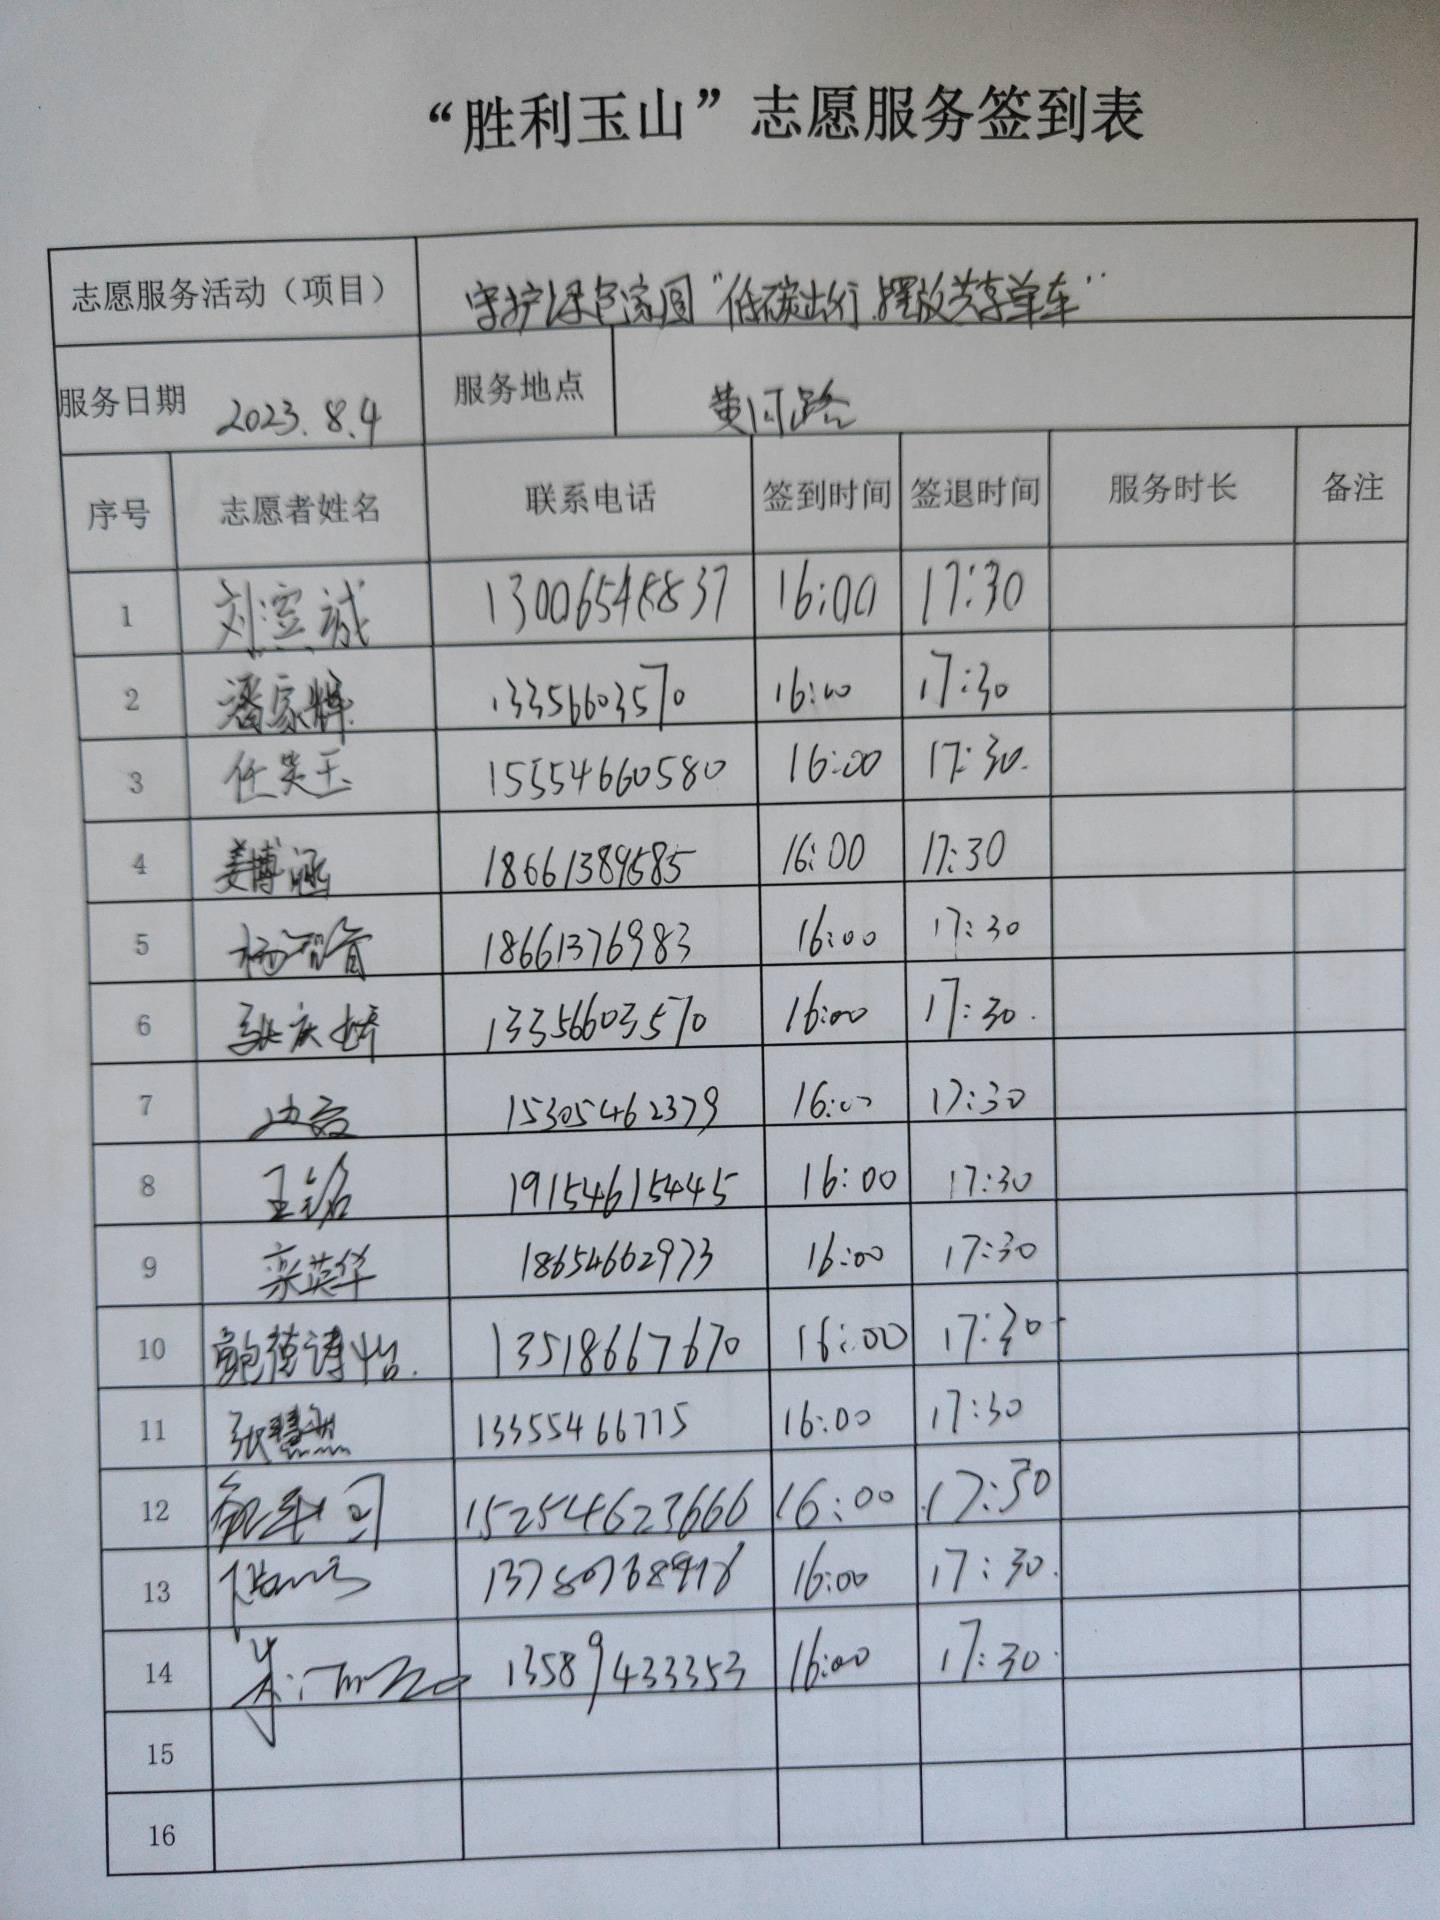 “胜利玉山”志愿服务签到表
志愿服务活动（项目） 守护绿色家园“低碳出行.摆放共享单车”
服务日期 2023.8.4 服务地点 黄河路
序号 志愿者姓名 联系电话 签到时间 签退时间 服务时长 备注
1 16:00 17:30
2 潘家辉 13356603570 16:00 17:30
3 任笑玉 15554660580 16:00 17:30.
4 姜博涵 18661389585 16:00 17:30
5 18661376983 16:00 17:30
6 13356603570 16:00 17:30.
7 15305462379 16:00 17:30
8 王铭 19154615445 16:00 17:30
9 栾英华 18654662973 16:00 17:30
10 鲍德诗怡. 13518667670 16:00 17:30
11 张慧 13355466775 16:00 17:30
12 15254623666 16:00 17:30
13 16:00 17:30.
14 13589433353 16:00 17:30.
15
16